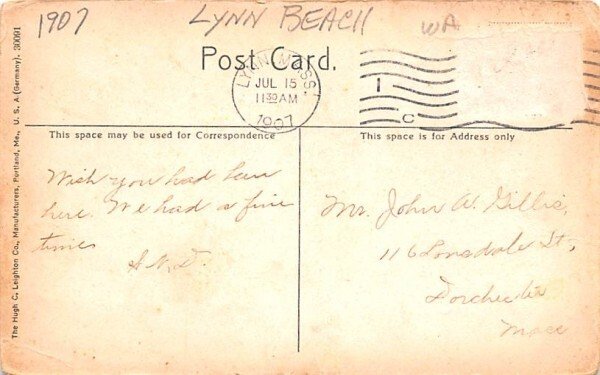 1907
LYNN BEACH
WA
Post Card.
LYNN, MASS.
JUL 15
11 30 AM
1907
1
C
This space may be used for Correspondence
This space is for Address only
Wish you had been
here. We had a fine
times
Mr. John A. Gillis,
116 Lonsdale St,
Dorchester
Mass
The Hugh C. Leighton Co., Manufacturers, Portland, Me., U. S. A (Germany). 30091